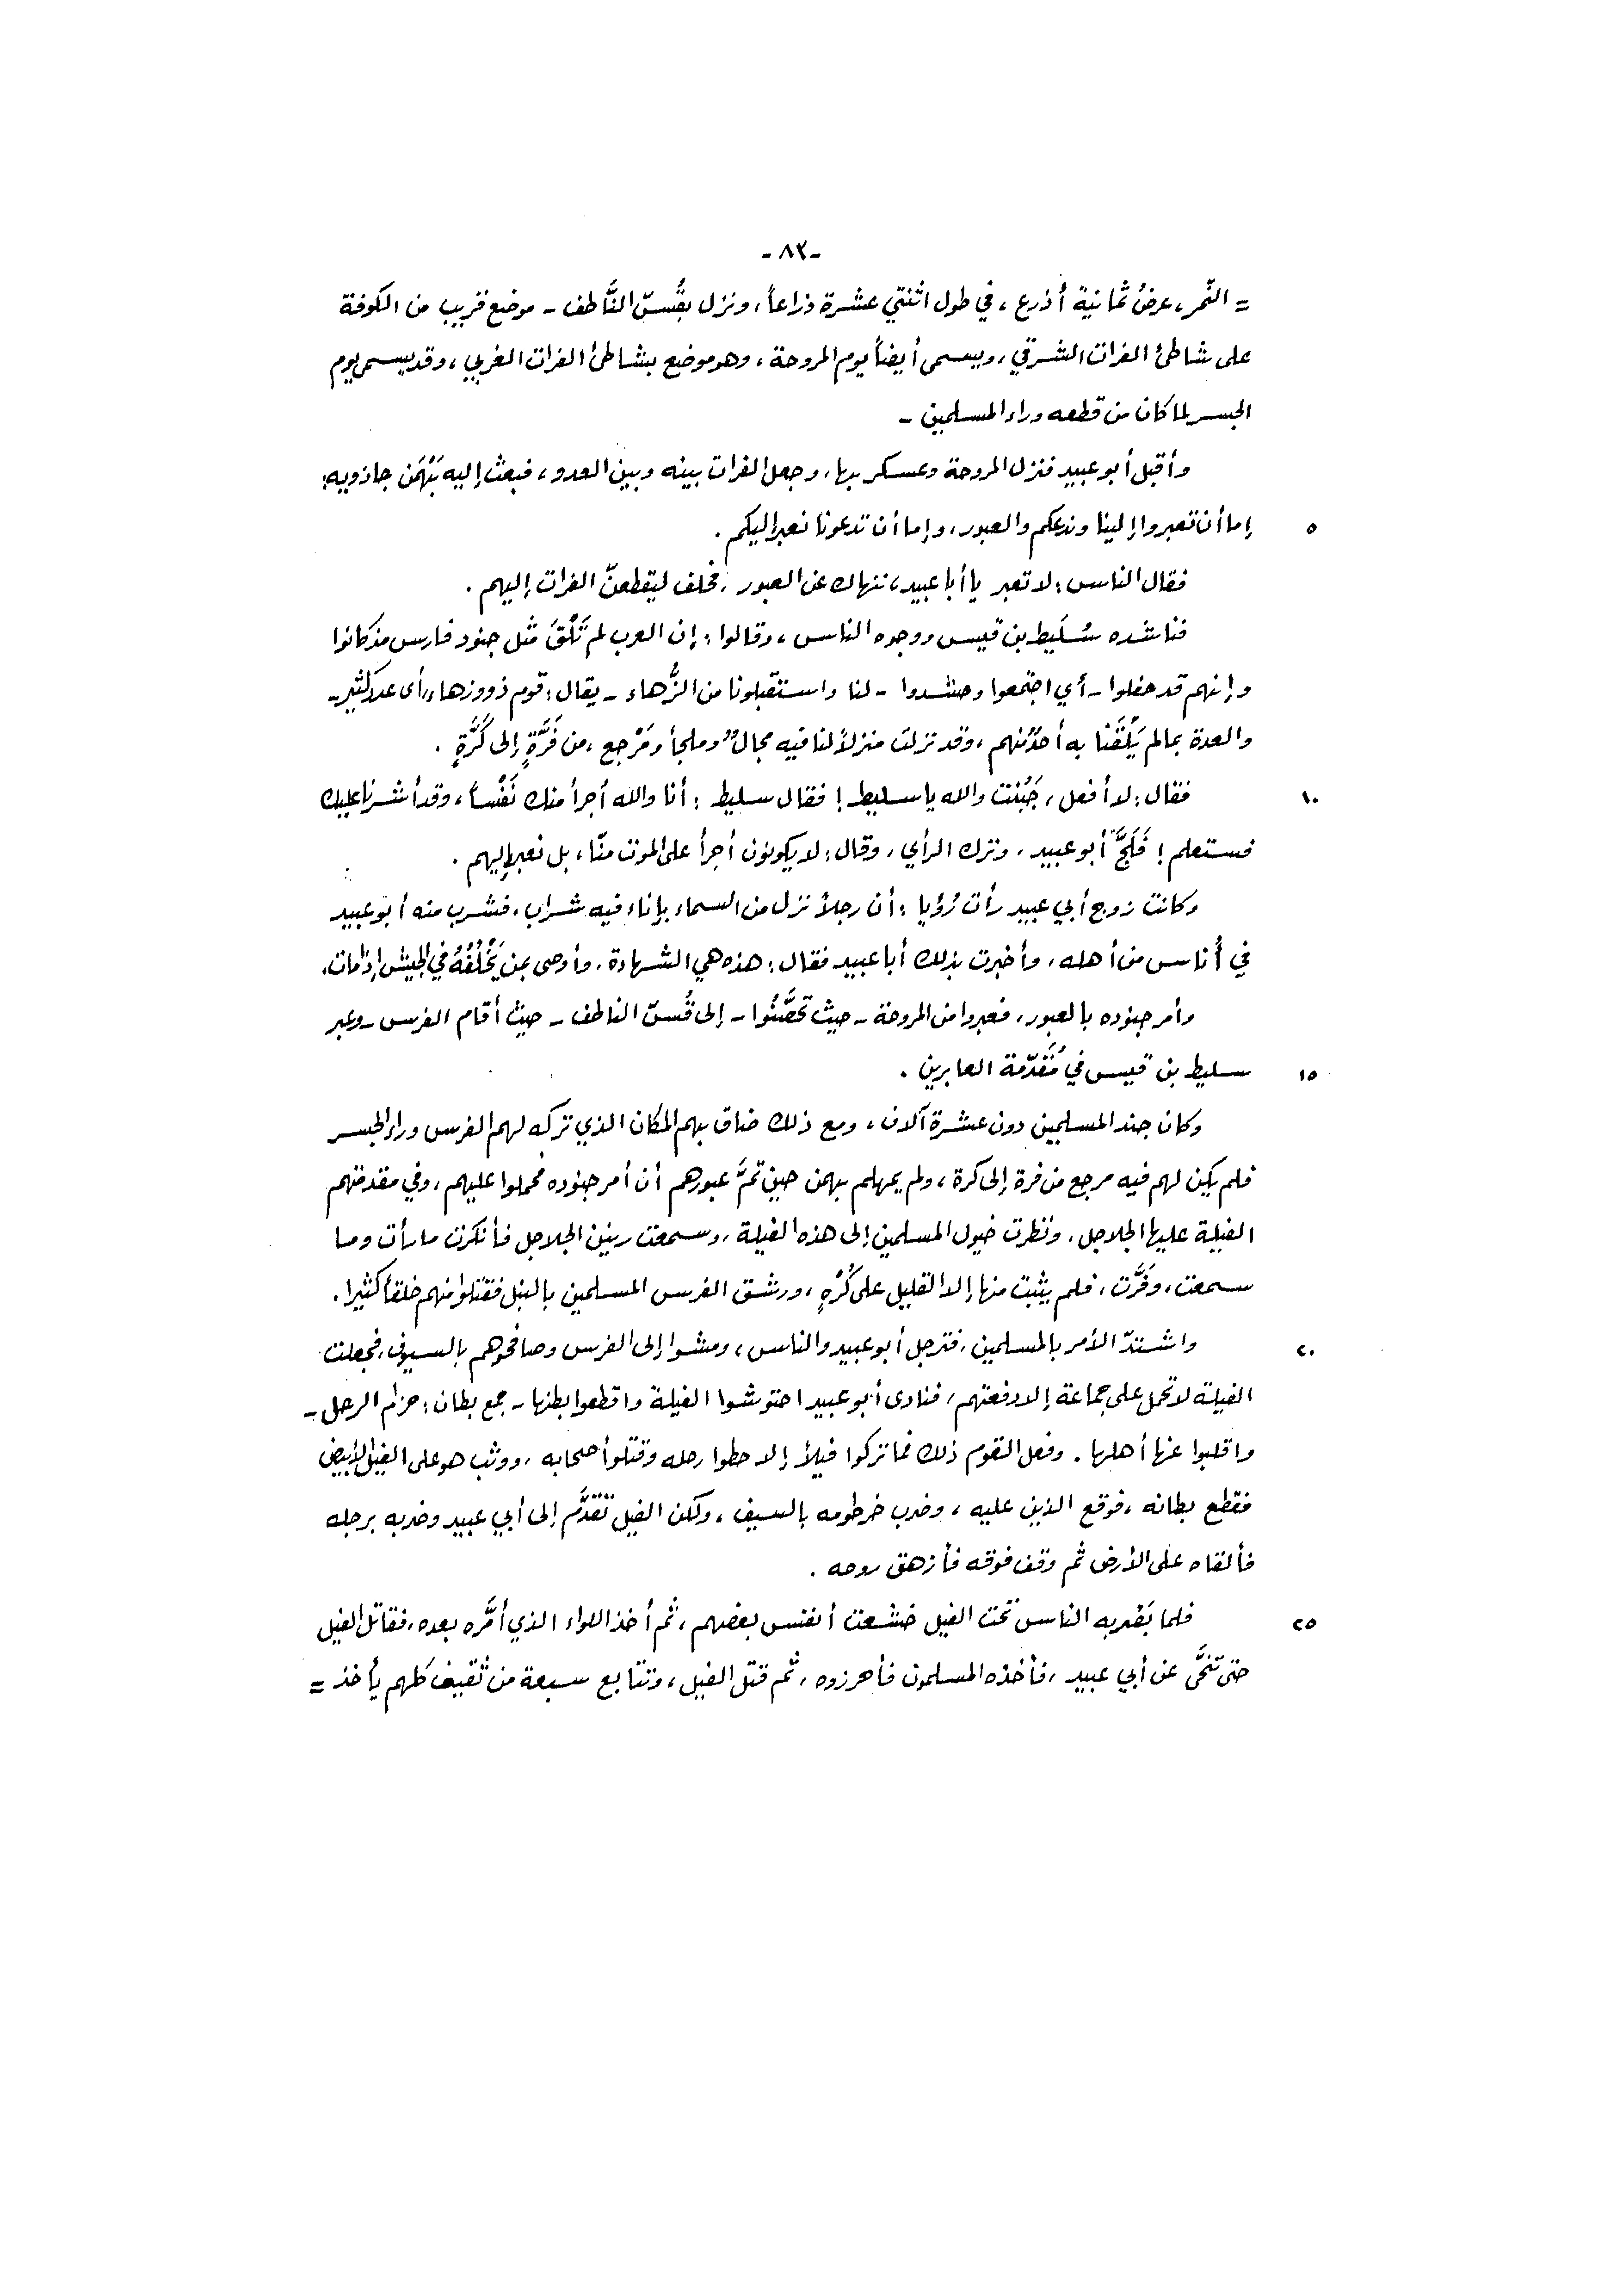 -٨٣-
= النّمر، عرضُ ثمانية أذرع، في طول اثنتي عشرة ذراعاً، ونزل بقُسّ النَّاطف - موضع قريب من الكوفة
على شاطئ الفرات الشرقي، ويسمى أيضاً يوم المروحة، وهو موضع بشاطئ الفرات الغربي، وقد يسمى يوم
الجسر لما كان من قطعه وراء المسلمين -
وأقبل أبو عبيد فنزل المروحة وعسكر بها، وجعل الفرات بينه وبين العدو، فبعث إليه بَهْمَن جاذويه:
إما أن تعبروا إلينا وندعكم والعبور، وإما أن تدعونا نعبر إليكم . ٥
فقال الناس: لا تعبر يا أبا عبيد، ننهاك عن العبور، فحلف ليقطعنّ الفرات إليهم .
فناشده سُلَيط بن قيس ووجوه الناس، وقالوا: إن العرب لم تَلْقَ مثل جنود فارس مذ كانوا
وإنهم قد حفلوا - أي اجتمعوا وحشدوا - لنا واستقبلونا من الزُّهاء - يقال: قوم ذوو زهاء، أي عدد كثير -
والعدة بما لم يَلْقَنا به أحدٌ منهم، وقد نزلت منزلاً لنا فيه مجالٌ وملجأ ومَرْجع، من فَرَّةٍ إلى كَرَّةٍ .
فقال: لا أفعل، جَبُنْتَ والله يا سليط! فقال سليط: أنا والله أجرأ منك نَفْساً، وقد أشرنا عليك ١٠
فستعلم! فَلَجَّ أبو عبيد، وترك الرأي، وقال: لا يكونون أجرأ على الموت منّا، بل نعبر إليهم .
وكانت زوج أبي عبيد رأت رُؤيا: أن رجلاً نزل من السماء بإناء فيه شراب، فشرب منه أبو عبيد
في أُناس من أهله، وأخبرت بذلك أبا عبيد فقال: هذه هي الشهادة، وأوصى بمن يَخْلُفُهُ في الجيش إذا مات.
وأمر جنوده بالعبور، فعبروا من المروحة - حيث تحصَّنُوا - إلى قُسّ الناطف - حيث أقام الفرس - وعبر
سليط بن قيس في مُقَدّمة العابرين . ١٥
وكان جند المسلمين دون عشرة آلاف، ومع ذلك ضاق بهم المكان الذي تركه لهم الفرس وراء الجسر
فلم يكن لهم فيه مرجع من فرة إلى كرة، ولم يمهلم بهمن حين تمَّ عبورهم أن أمر جنوده فحملوا عليهم، وفي مقدمتهم
الفيلة عليها الجلاجل، ونظرت خيول المسلمين إلى هذه الفيلة، وسمعت رنين الجلاجل فأنكرت ما رأت وما
سمعت، وفَرَّت، فلم يثبت منها إلا القليل على كُرْهٍ، ورشق الفرس المسلمين بالنبل فقتلوا منهم خلقاً كثيرا.
واشتدّ الأمر بالمسلمين، فترجل أبو عبيد والناس، ومشوا إلى الفرس وصافحوهم بالسيوف، فجعلت ٢٠
الفيلة لا تحمل على جماعة إلا دفعتهم، فنادى أبو عبيد احتوشوا الفيلة واقطعوا بطنها - جمع بطان: حزام الرحل -
واقلبوا عنها أهلها. وفعل القوم ذلك فما تركوا فيلاً إلا حطوا رحله وقتلوا أصحابه، ووثب هو على الفيل الأبيض
فقطع بطانه، فوقع الذين عليه، وضرب خرطومه بالسيف، ولكن الفيل تقدَّم إلى أبي عبيد وضربه برجله
فألقاه على الأرض ثم وقف فوقه فأزهق روحه .
فلما بَصُر به الناس تحت الفيل خشعت أنفس بعضهم، ثم أخذ اللواء الذي أمَّره بعده، فقاتل الفيل ٢٥
حتى تنحَّى عن أبي عبيد، فأخذه المسلمون فأحرزوه، ثم قتل الفيل، وتتابع سبعة من ثقيف كلهم يأخذ =